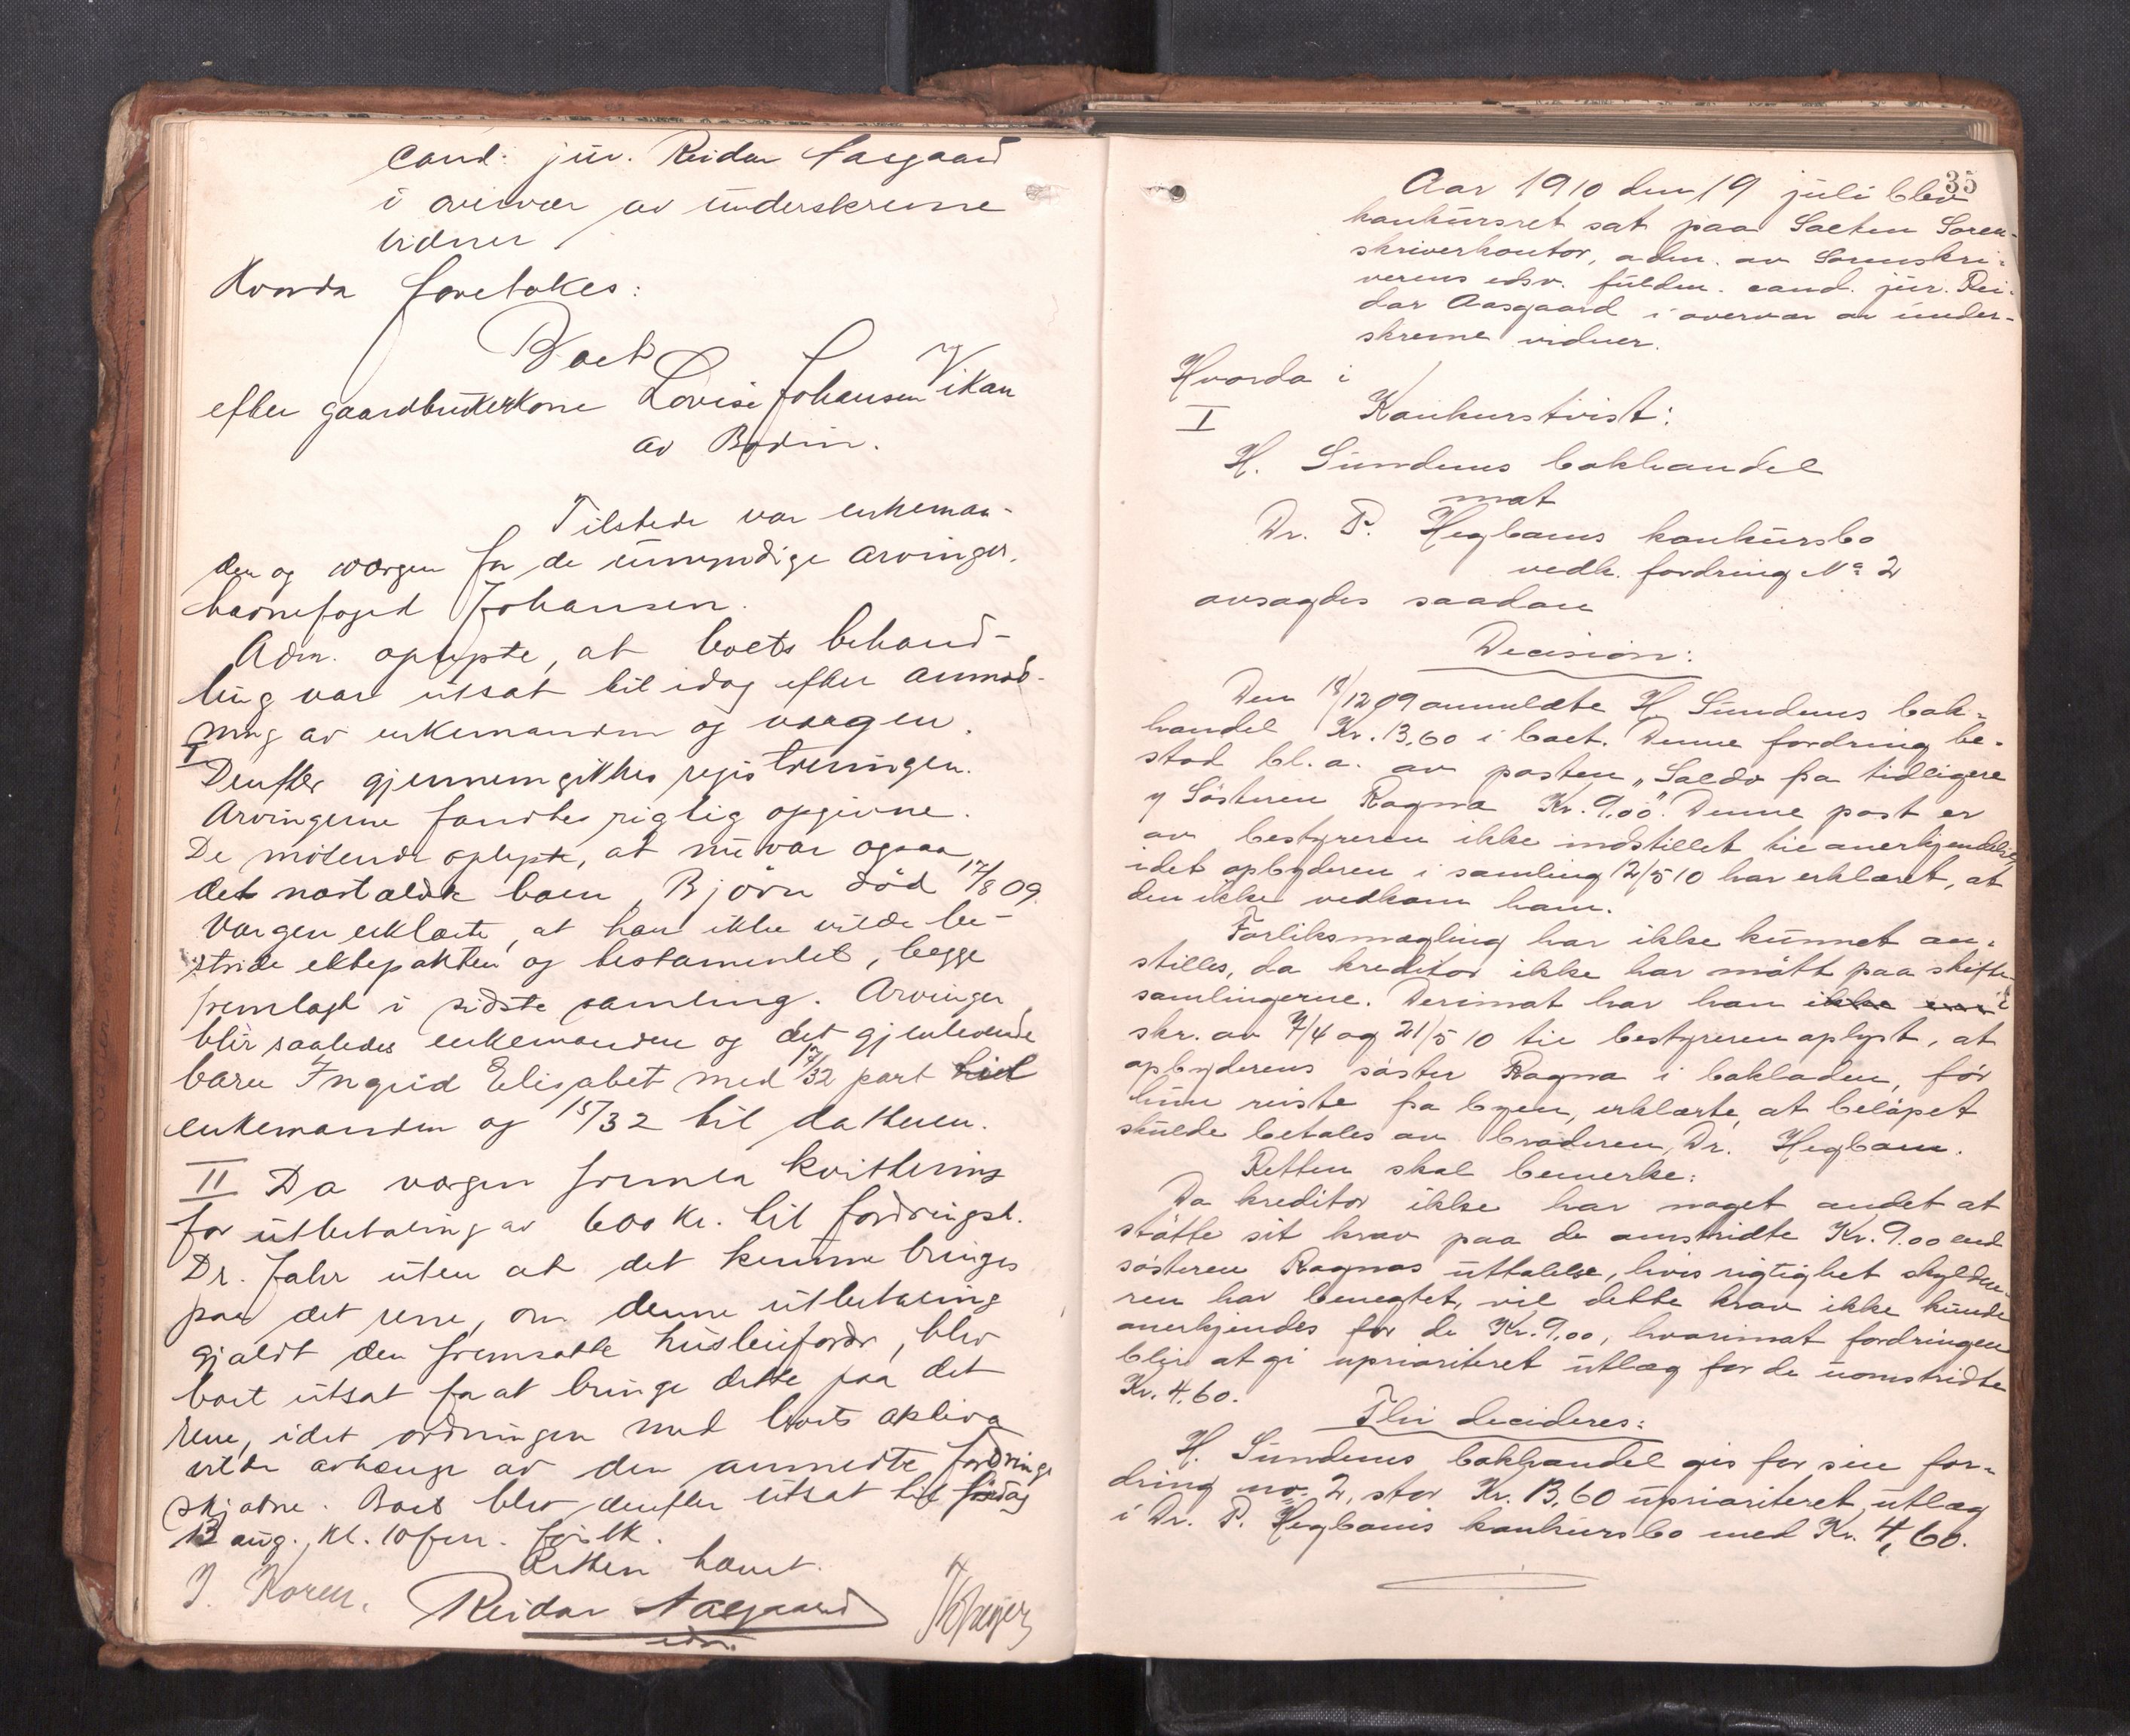 cand. jur. Reidar Aasgaard
i overvær av underskrevne
vidner
Hvorda foretokes:
Boet
efter gaardbrukerkone Lovise Johansen Vikan
av Bodin.
Tilstede var enkeman-
den og værgen for de umyndige arvinger,
havnefoged Johansen.
Adm. oplyste, at boets behand-
ling var utsat til idag efter anmod-
ning av enkemanden og værgen.
I
Derefter gjennemgikkes registreringen.
Arvingerne fandtes rigtig opgivne.
De møtende oplyste, at nu var ogsaa
det næstældste barn, Bjørn død 17/8 09.
Værgen erklærte, at han ikke vilde be-
stride ektepakten og testamentet, begge
fremlagt i sidste samling. Arvinger
blir saaledes enkemanden og det gjenlevende
barn Ingrid Elisabet med 17/32 part til
enkemanden og 15/32 til datteren.
II Da værgen fremla kvittering
for utbetaling av 600 kr. til fordringsh.
Dr. Jahr uten at det kunne bringes
paa det rene, om denne utbetaling
gjaldt den fremsatte husleiefordr, blev
boet utsat for at bringe dette paa det
rene, idet ordningen med boets aktiva
vilde avhænge av den anmeldte fordrings
skjæbne. Boet blev derefter utsat til lørdag
13 aug. kl. 10 form.
Retten hævet.
J. Koren. Reidar Aasgaard
edsv.
35
Aar 1910 den 19 juli blev
konkursret sat paa Salten Soren-
skriverkontor, adm. av Sorenskri-
verens edsv. fuldm. cand. jur. Rei-
dar Aasgaard i overvær av under-
skrevne vidner.
Hvorda i
I Konkurstvist:
H. Sundems bokhandel
mot
Dr. P. Hegboms konkursbo
vedk. fordring No 2
avsagdes saadan
Decision:
Den 18/12 09 anmeldte H. Sundems bok-
handel Kr. 13,60 i boet. Denne fordring be-
stod bl. a. av posten "Saldo fra tidligere
% Søsteren Ragna Kr. 9,00". Denne post er
av bestyreren ikke indstillet til anerkjendelse,
idet opbyderen i samling 12/5 10 har erklæret, at
den ikke vedkom ham.
Forliksmægling har ikke kunnet an-
stilles, da kreditor ikke har møtt paa skifte-
samlingerne. Derimot har han ikke i
skr. av 7/4 og 21/5 10 til bestyreren oplyst, at
opbyderens søster Ragna i bokladen, før
hun reiste fra byen, erklærte, at beløpet
skulde betales av broderen, Dr. Hegbom.
Retten skal bemerke:
Da kreditor ikke har noget andet at
støtte sit krav paa de omstridte Kr. 9.00 end
søsteren Ragnas uttalelse, hvis rigtighet skyldne-
ren har benegtet, vil dette krav ikke kunde
anerkjendes for de Kr. 9,00, hvorimot fordringen
blir at gi uprioriteret utlæg for de uomstridte
Kr. 4,60.
Thi decideres:
H. Sundems bokhandel gis for sin for-
dring no. 2, stor Kr. 13,60 uprioriteret utlæg
i Dr. P. Hegboms konkursbo med Kr. 4,60.